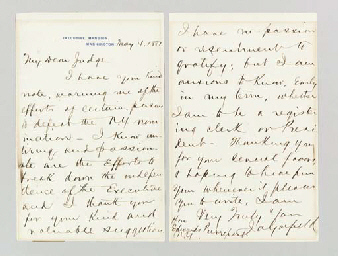 EXECUTIVE MANSION
WASHINGTON May 8, 188
My Dear Judge
I have your kind
note, warning me of the
efforts of certain persons
to defeat the
nomination - I know
and
are the efforts to
break down the indepen
dence of the Executive
and I thank you
for your kind and
valuable suggestions
I have no passion
or resentment to
gratify; but I am
anxious to know, early
in my term, whether
I am to be a register
ing clerk or Presi
dent - Thanking you
for your several favors,
& hoping to hear from
you whenever it pleases
you to write, I am
Very Truly Yours
Hon J A Garfield